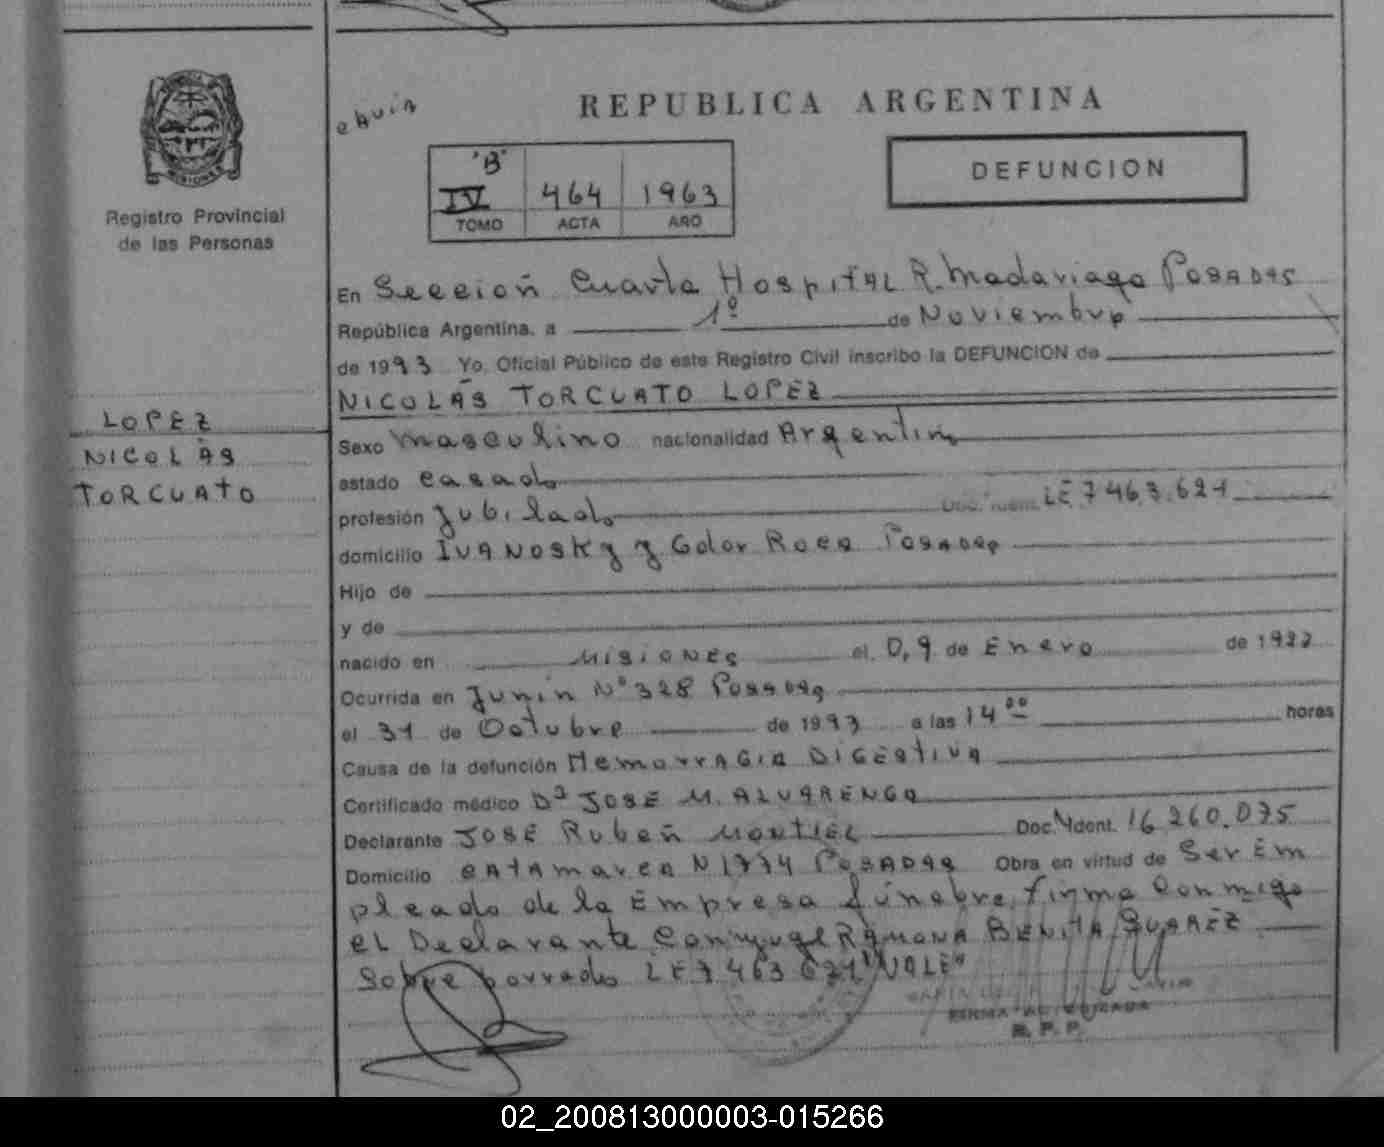 REPUBLICA ARGENTINA
DEFUNCION
"B"
IV 464 1963
TOMO ACTA AÑO
Registro Provincial
de las Personas
LOPEZ
NICOLÁS
TORCUATO
En Sección Cuarta Hospital R. Madariaga POSADAS
República Argentina, a 1º de Noviembre
de 1993 Yo, Oficial Público de este Registro Civil inscribo la DEFUNCION de
NICOLÁS TORCUATO LOPEZ
Sexo Masculino nacionalidad Argentino
estado casado
profesión Jubilado Doc. Ident. LE.7463.621
domicilio IVANOSKY y Golor Roca POSADAS
Hijo de
y de
nacido en MISIONES el 0,9 de Enero de 1922
Ocurrida en Junín Nº 328 Posadas
el 31 de Octubre de 1993 a las 14 00 horas
Causa de la defunción HemorrAGIA DIGESTIVA
Certificado médico Dº JOSE M. ALVARENGA
Declarante JOSE Rubeñ MONTIEL Doc. Ident. 16.260.075
Domicilio CATAmarca N 1774 POSADAS Obra en virtud de Ser Em
pleado de la Empresa fúnebre, firma Conmigo
el Declarante Conyuge RAMONA BENITA SUAREZ
Sobre borrado LE 7463621 "VALE"
FIRMA AUTORIZADA
R. P. P.
02_200813000003-015266